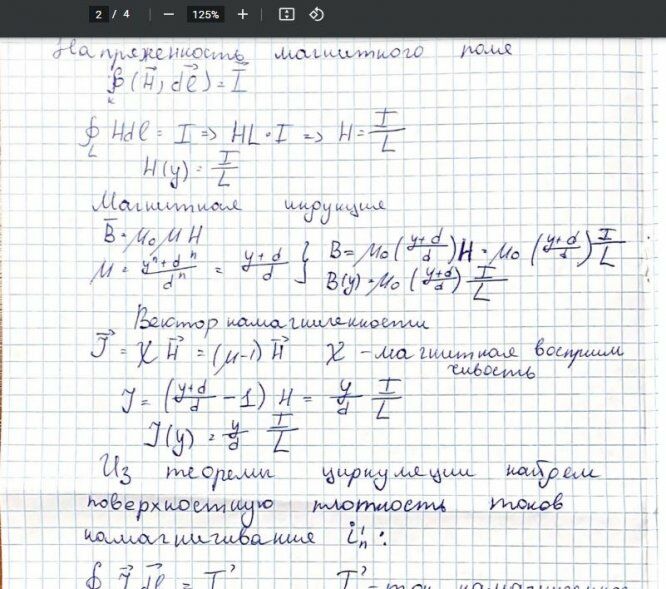 2 / 4 — 125% +
Напряженность магнитного поля
∮ₖ (H⃗, dl⃗) = I⃗
∮_L Hdl = I => HL = I => H = I/L
H(y) = I/L
Магнитная индукция
B̄ = μ₀ μ H
μ = (yⁿ + dⁿ)/dⁿ = (y+d)/d } B = μ₀ ((y+d)/d) H = μ₀ ((y+d)/d) I/L
B(y) = μ₀ ((y+d)/d) I/L
Вектор намагниченности
J⃗ = χ H⃗ = (μ-1) H⃗ χ - магнитная восприим
чивость
J = ((y+d)/d - 1) H = y/d I/L
J(y) = y/d I/L
Из теоремы циркуляции найдем
поверхностную плотность токов
намагничивания i'ₙ:
∮ J⃗ dl⃗ = I' I' - ток